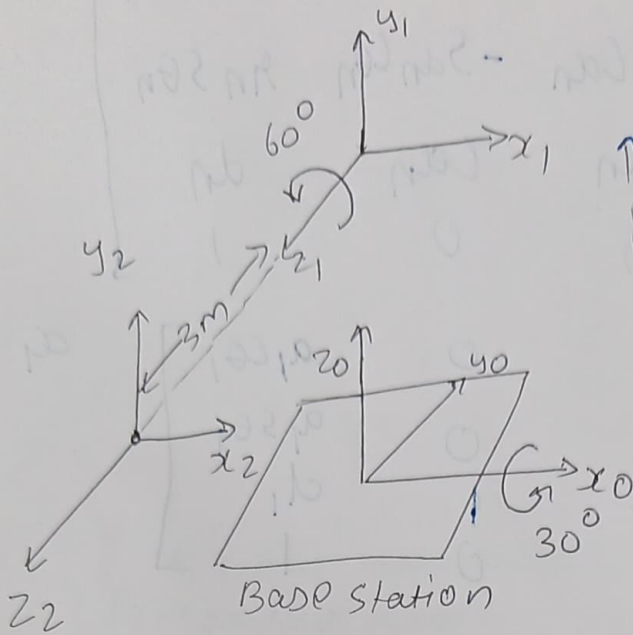 y1
60°
x1
z1
y2
3m
z0
y0
x2
x0
30°
z2
Base station